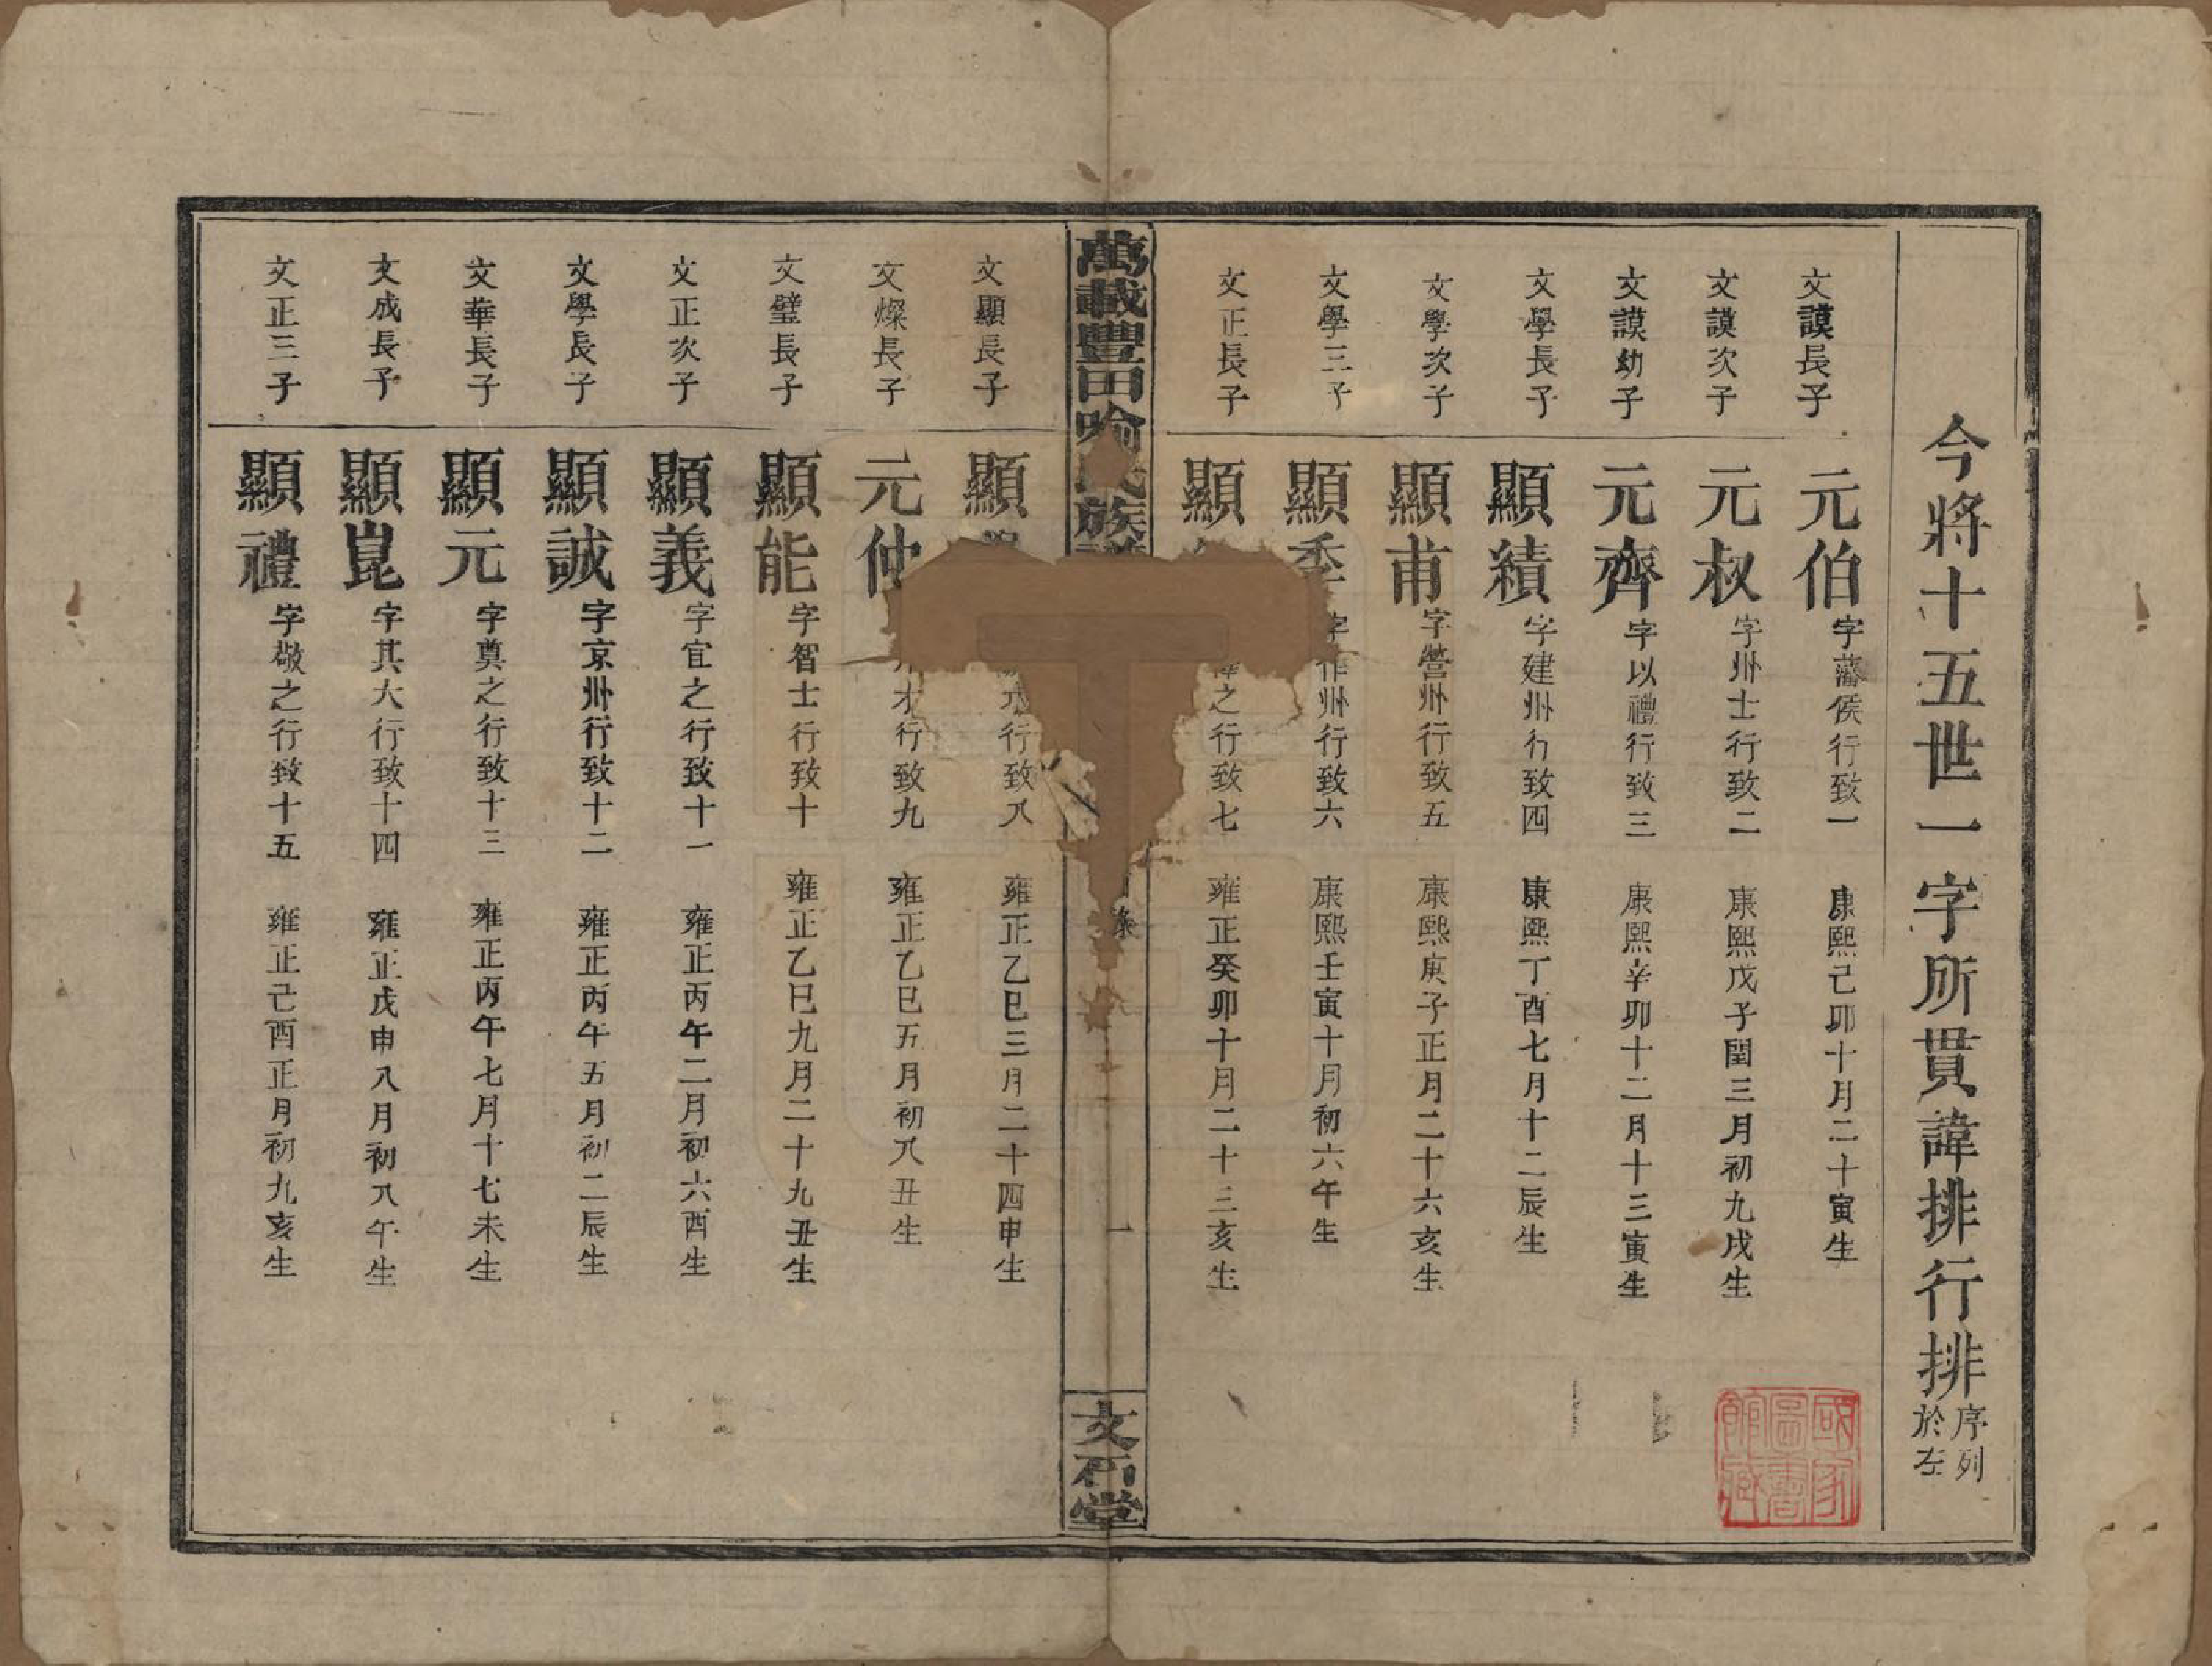 今將十五世一字所貫諱排行排序列於左
文謨長子 元伯 字藩侯行致一 康熙己卯十月二十寅生
文謨次子 元叔 字州士行致二 康熙戊子閏三月初九戌生
文謨幼子 元齊 字以禮行致三 康熙辛卯十二月十三寅生
文學長子 顯績 字建州行致四 康熙丁酉七月十二辰生
文學次子 顯甫 字營州行致五 康熙庚子正月二十六亥生
文學三子 顯季 字作州行致六 康熙壬寅十月初六午生
文正長子 顯 之行致七 雍正癸卯十月二十三亥生
萬載豐田喻氏族譜 一 文石堂
文顯長子 顯 行致八 雍正乙巳三月二十四申生
文燦長子 元仲 才行致九 雍正乙巳五月初八丑生
文璧長子 顯能 字智士行致十 雍正乙巳九月二十九丑生
文正次子 顯義 字宜之行致十一 雍正丙午二月初六酉生
文學長子 顯誠 字京州行致十二 雍正丙午五月初二辰生
文華長子 顯元 字奠之行致十三 雍正丙午七月十七未生
文成長子 顯崑 字其大行致十四 雍正戊申八月初八午生
文正三子 顯禮 字敬之行致十五 雍正己酉正月初九亥生
國家圖書館藏